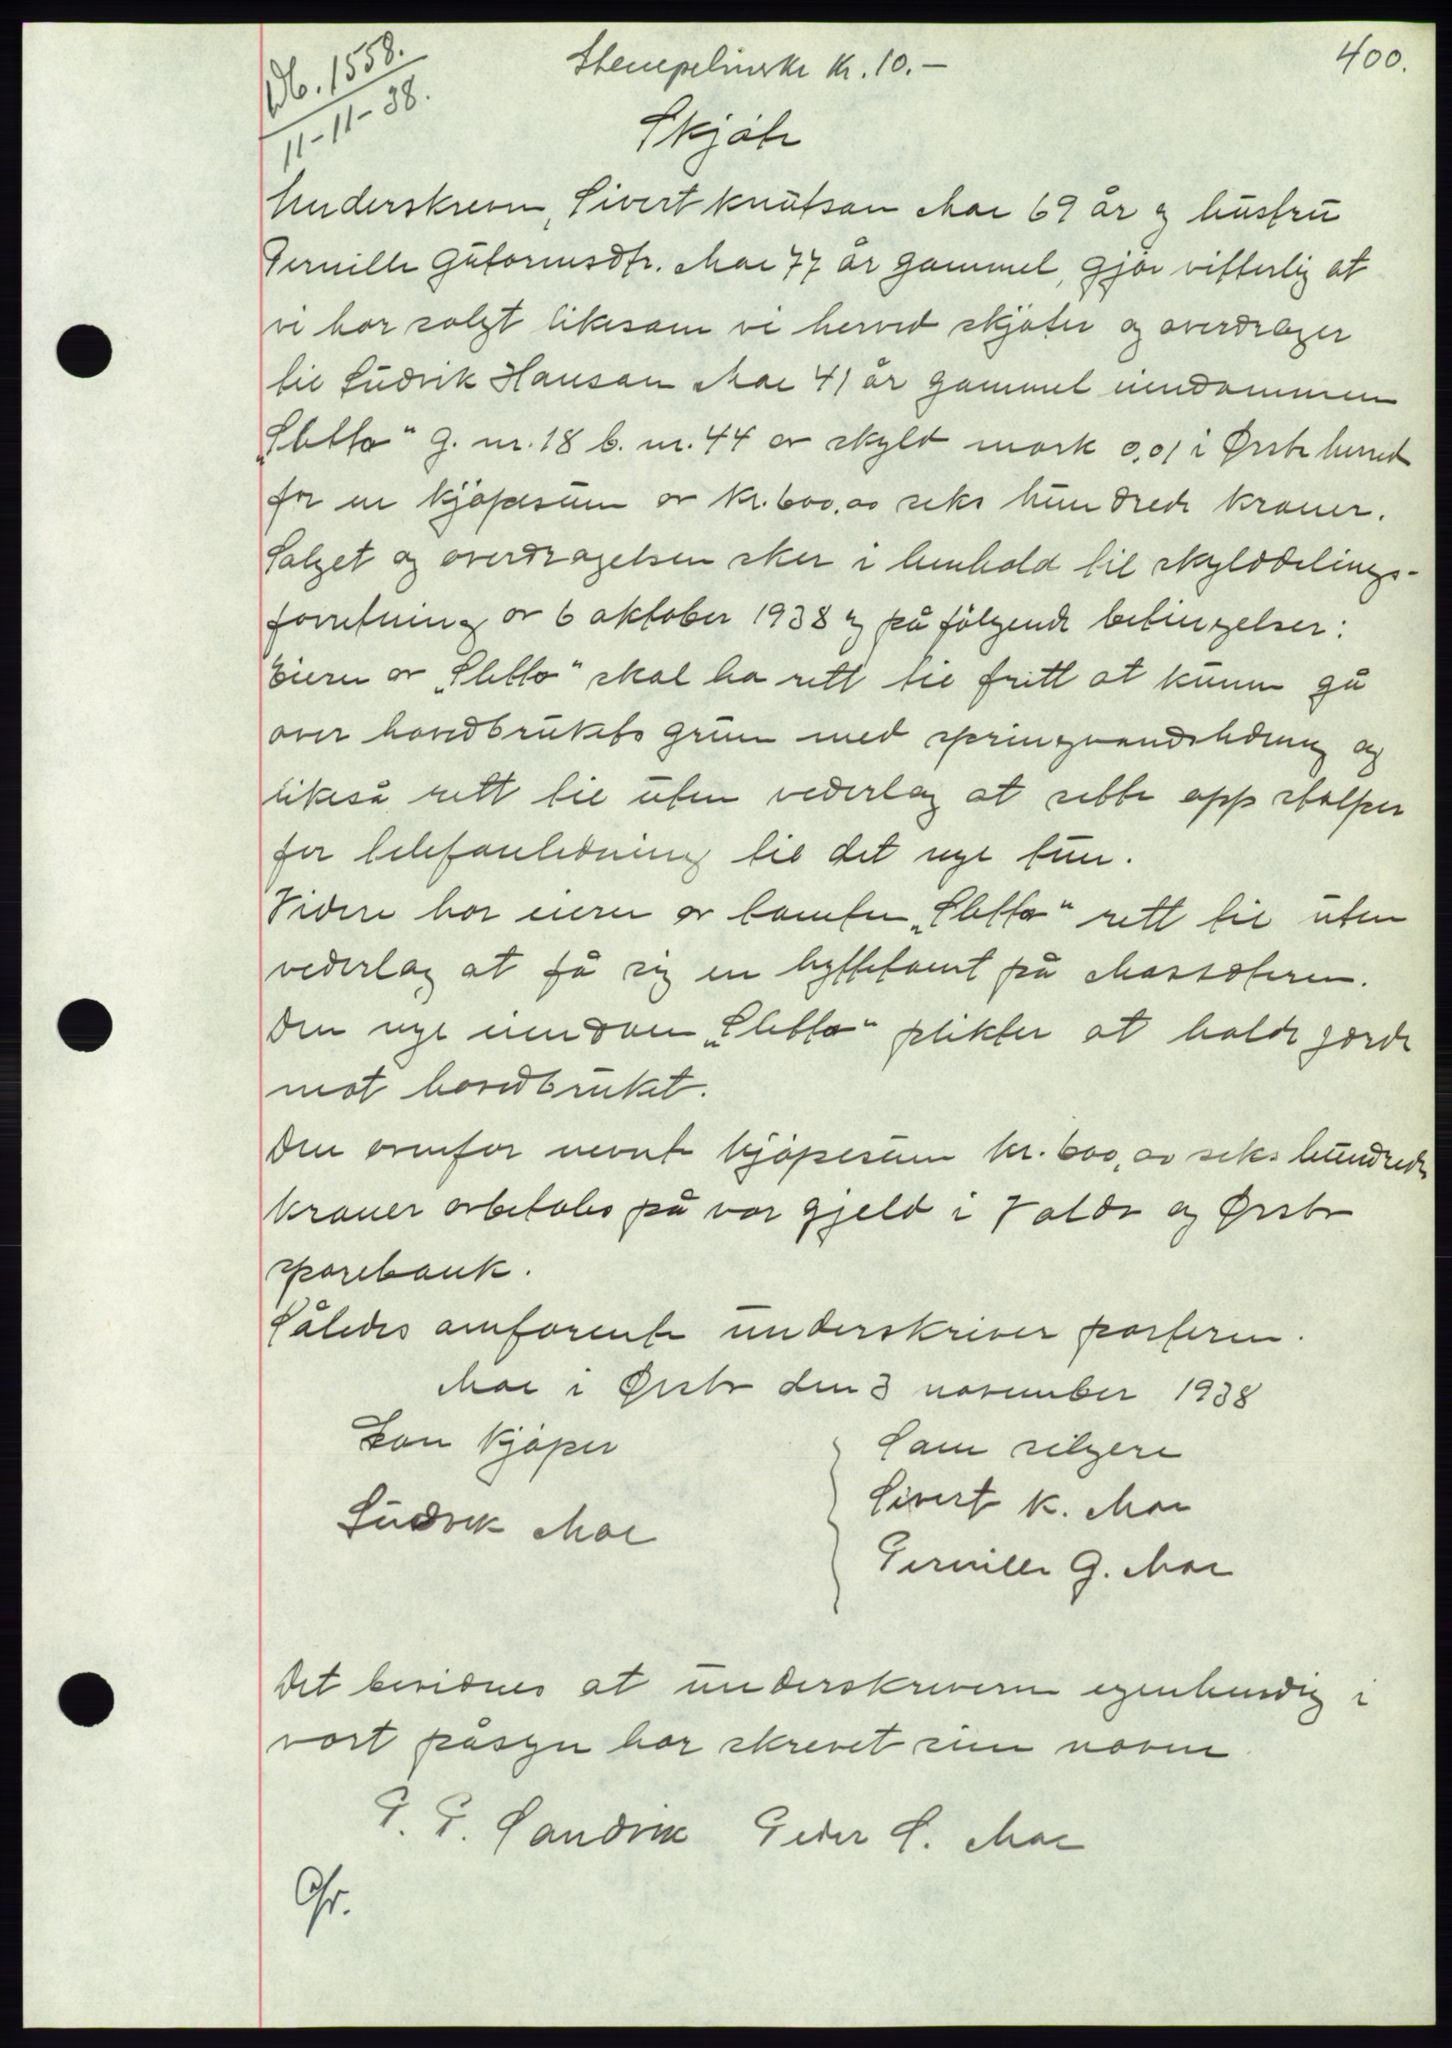 Db. 1558.
11-11-38.
Stempelmerke kr. 10.-
400.
Skjøte
Underskrevne, Sivert Knutson Moe 69 år og hustru
Pernille Gutormsdtr. Moe 77 år gammel, gjør vitterlig at
vi har solgt likesom vi herved skjøter og overdrager
til Ludvik Hanson Moe 41 år gammel eiendommen
„Sletta" g. nr. 18 b. nr. 44 av skyld mark 0,01 i Ørsta herred
for en kjøpesum av kr. 600,00 seks hundrede kroner.
Salget og overdragelsen sker i henhold til skylddelings-
forretning av 6 oktober 1938 og på følgende betingelser:
Eieren av „Sletta" skal ha rett til fritt at kunne gå
over hovedbrukets grunn med springvandsledning og
likeså rett til uten vederlag at sette opp stolper
for telefonledning til det nye tun.
Videre har eieren av tomten „Sletta" rett til uten
vederlag at få sig en hyttetomt på Moesæteren.
Den nye eiendom „Sletta" plikter at holde gjerde
mot hovedbruket.
Den ovenfor nevnte kjøpesum kr. 600,00 seks hundrede
kroner avbetales på vor gjeld i Volda og Ørsta
sparebank.
Således omforente underskriver parterne.
Moe i Ørsta den 3 november 1938
Som kjøper
Ludvik Moe
Som selgere
Sivert K. Moe
Pernille G. Moe
Det bevidnes at underskriverne egenhendig i
vort påsyn har skrevet sine navne.
P. P. Sandvik Peder S. Moe